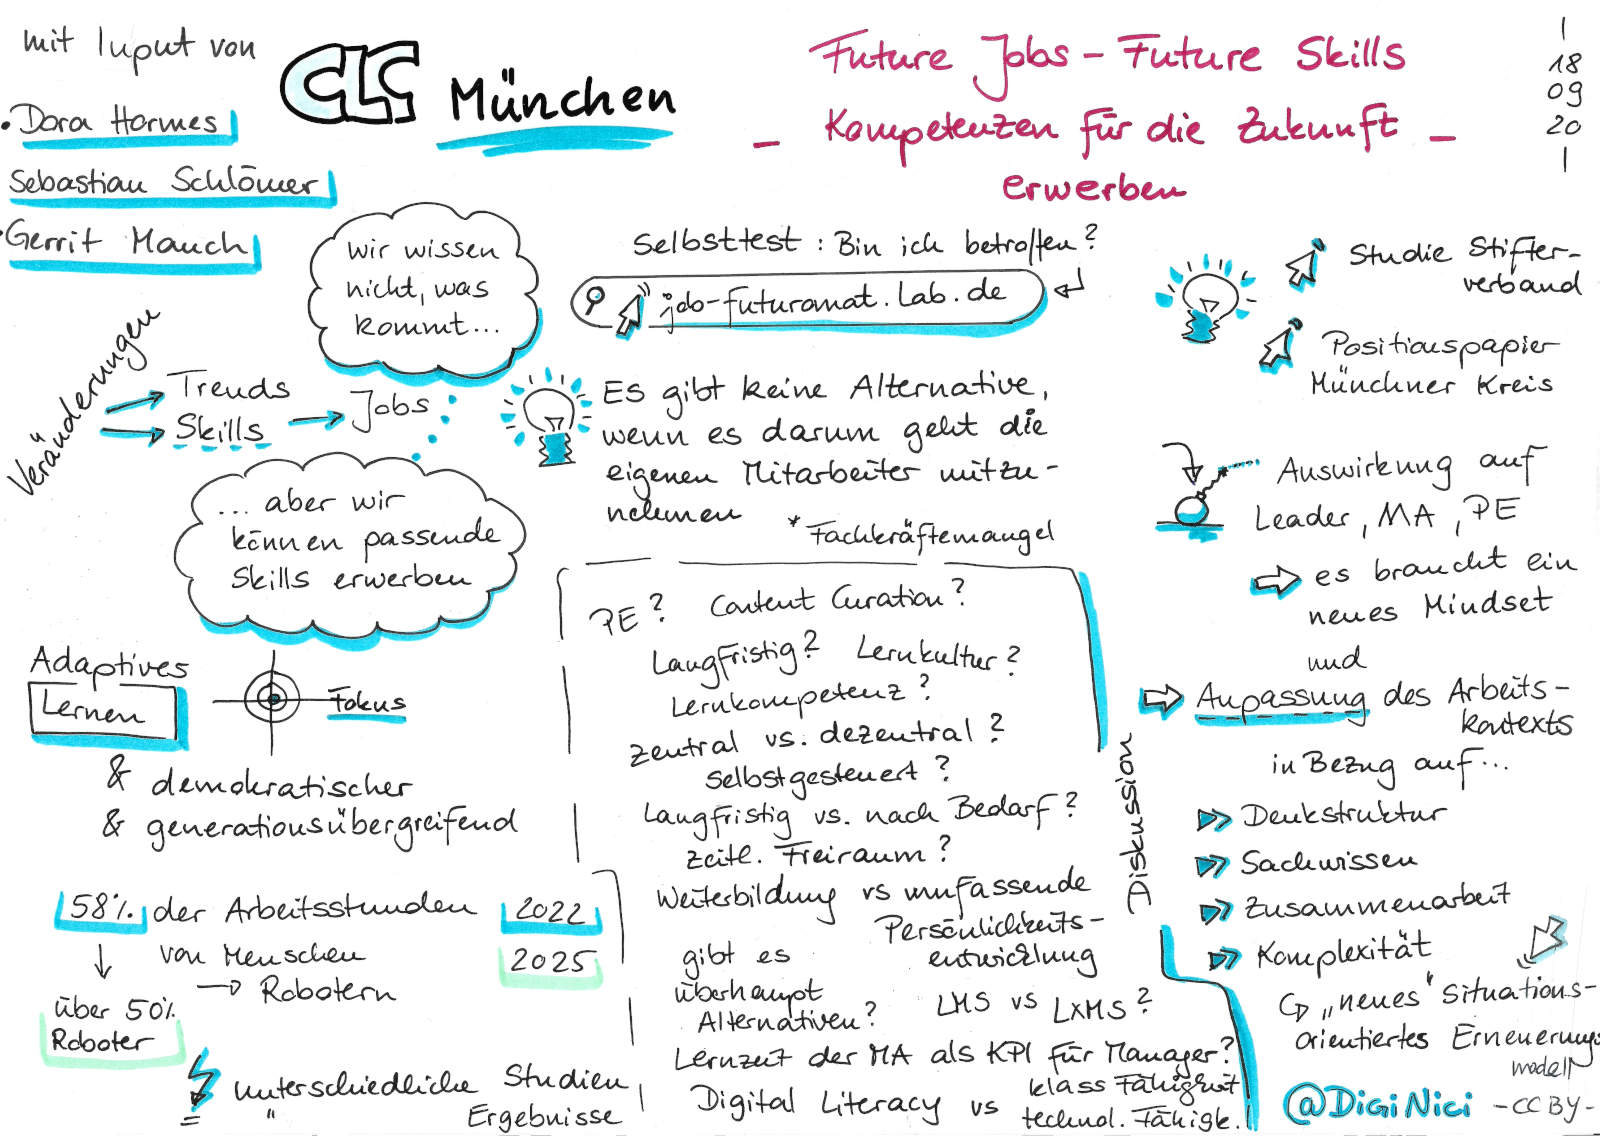 mit Input von
• Dora Hormes
Sebastian Schlömer
• Gerrit Mauch
CLC München
Future Jobs – Future Skills
– Kompetenzen für die Zukunft –
erwerben
18
09
20
wir wissen
nicht, was
kommt...
Veränderungen
Trends
Skills
Jobs
... aber wir
können passende
Skills erwerben
Adaptives
Lernen
Fokus
& demokratischer
& generationsübergreifend
58% der Arbeitsstunden 2022
von Menschen 2025
→ Robotern
über 50%
Roboter
unterschiedliche Studien
" Ergebnisse
Selbsttest : Bin ich betroffen?
job-futuromat.lab.de
Es gibt keine Alternative,
wenn es darum geht die
eigenen Mitarbeiter mitzu-
nehmen
* Fachkräftemangel
PE? Content Curation?
Langfristig? Lernkultur?
Lernkompetenz?
zentral vs. dezentral?
selbstgesteuert?
Langfristig vs. nach Bedarf?
zeitl. Freiraum?
Weiterbildung vs umfassende
Persönlichkeits-
entwicklung
gibt es
überhaupt
Alternativen?
LMS vs LXMS?
Lernzeit der MA als KPI für Manager?
Digital Literacy vs klass Fähigkeit
technol. Fähigk.
Diskussion
Studie Stifter-
verband
Positionspapier
Münchner Kreis
Auswirkung auf
Leader, MA, PE
es braucht ein
neues Mindset
und
Anpassung des Arbeits-
kontexts
in Bezug auf...
Denkstruktur
Sachwissen
Zusammenarbeit
Komplexität
„neues" Situations-
orientiertes Erneuerungs
modell
@DigiNici - CC BY -